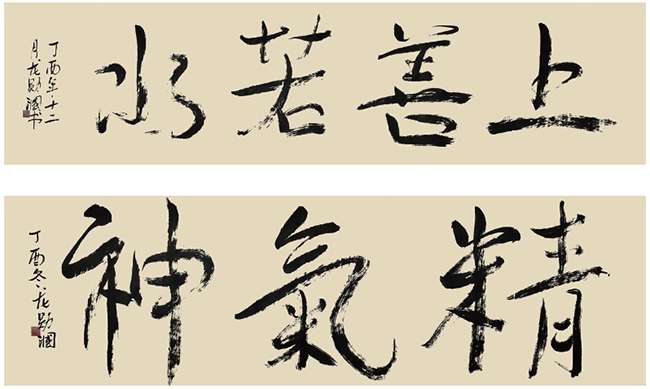 上善若水
丁酉年十二
月龙书
精氣神
丁酉冬龙